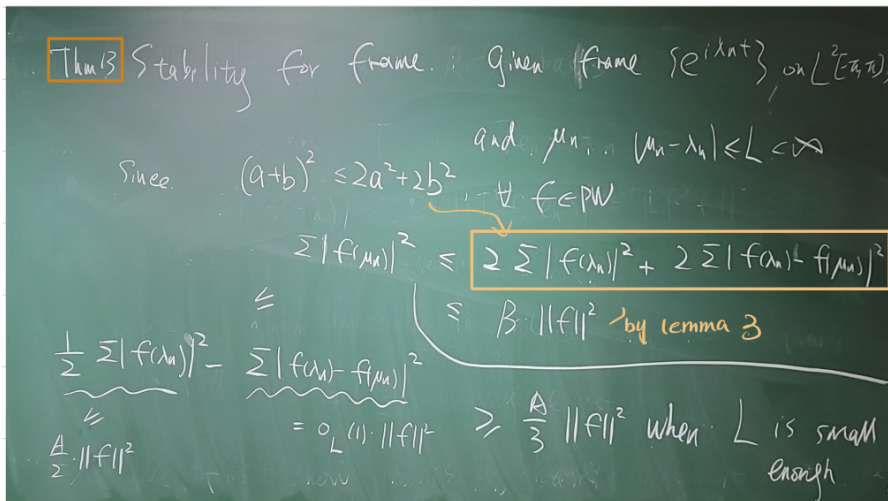 Thm13 Stability for frame. Given frame {e^{iλnt}} on L²[-π,π],
and μn, |μn-λn| ≤ L < ∞
Since (a+b)² ≤ 2a²+2b² ∀ f∈PW
Σ|f(μn)|² ≤ 2Σ|f(λn)|² + 2Σ|f(λn)-f(μn)|²
≤ B·||f||² by lemma 3
½ Σ|f(λn)|² - Σ|f(λn)-f(μn)|²
A/2·||f||² = o_L(1)·||f||² ≥ A/3 ||f||² when L is small
enough